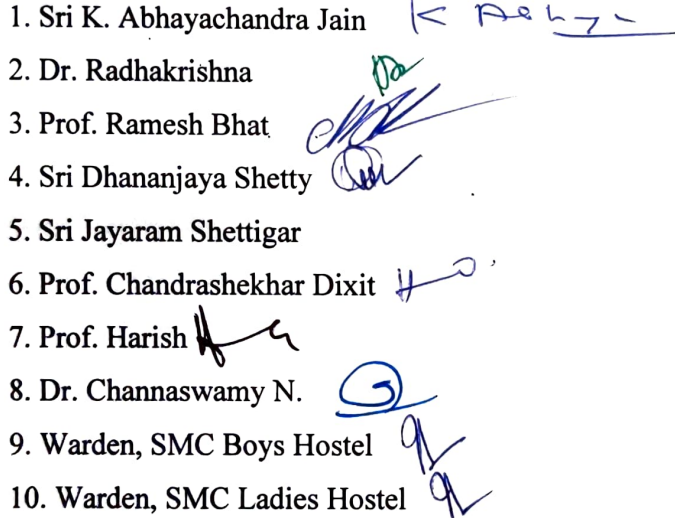 1. Sri K. Abhayachandra Jain
2. Dr. Radhakrishna
3. Prof. Ramesh Bhat
4. Sri Dhananjaya Shetty
5. Sri Jayaram Shettigar
6. Prof. Chandrashekhar Dixit
7. Prof. Harish
8. Dr. Channaswamy N.
9. Warden, SMC Boys Hostel
10. Warden, SMC Ladies Hostel